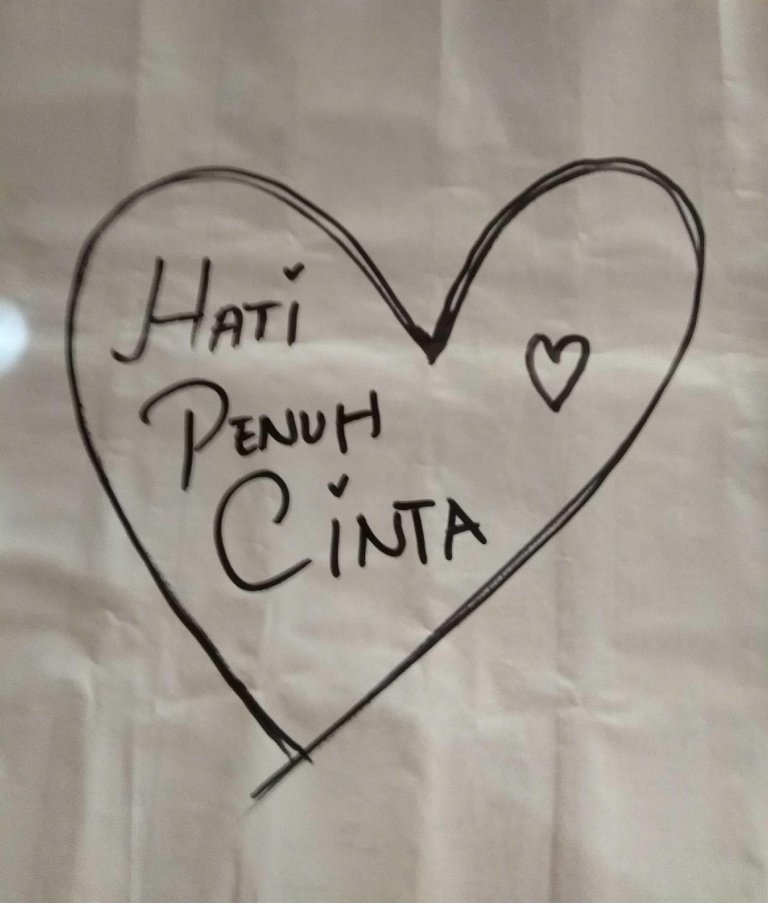 HATi
PENUH
CiNTA